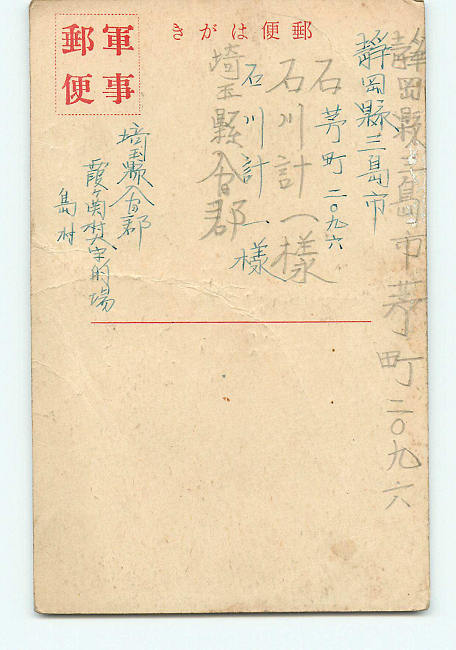 軍事
郵便
郵便はがき
静岡縣三島市茅町二〇九六
静岡縣三島市
茅町二〇九六
石
石川計一様
石川計一様
埼玉縣入間郡
埼玉縣入間郡
霞ヶ関村大字的場
島村